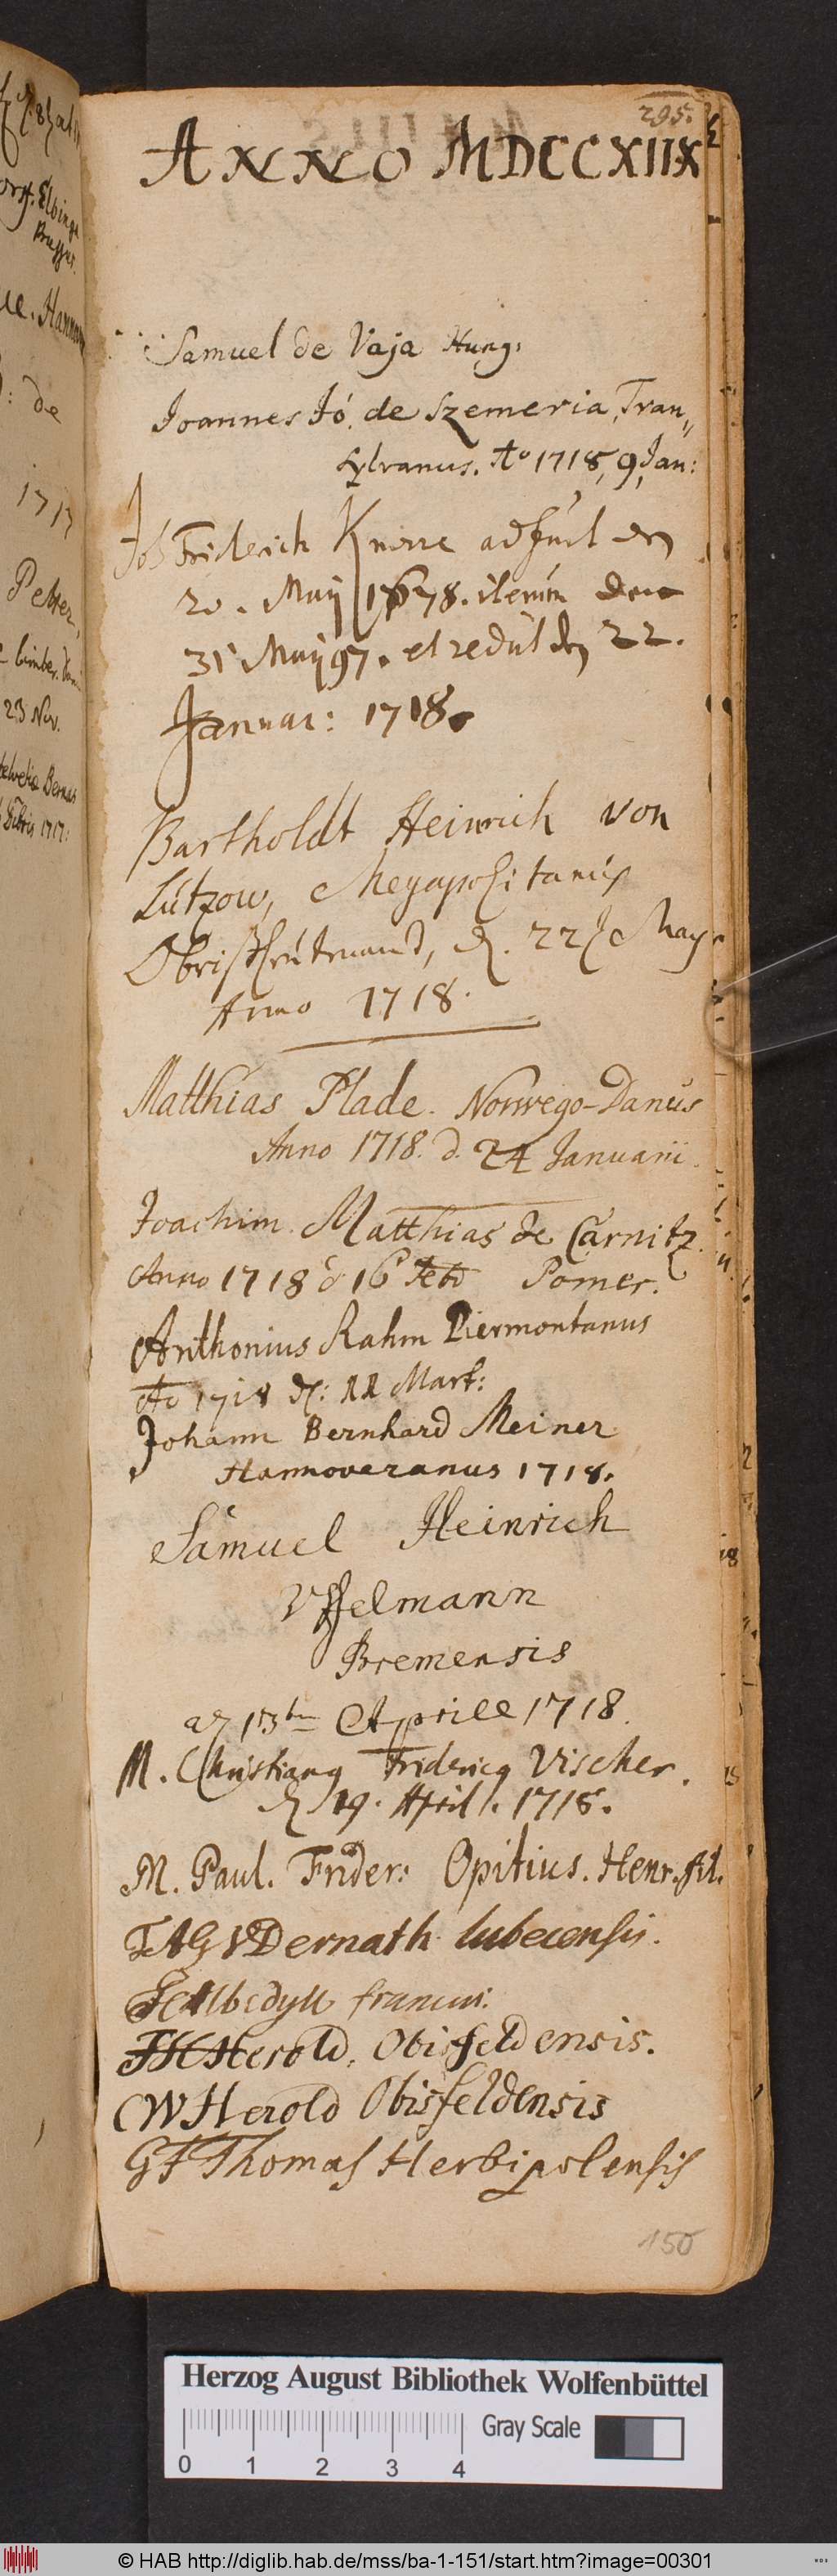 295.
ANNO MDCCXIIX
Samuel de Vaja Hung:
Joannes Jó. de Szemeria, Tran„
sylvanus. Ao 1718, 9 Jan:
Joh Friderich Knorre adfuit den
20. Maij 1678. iterum den
31 Maij 97. et rediit den 22.
Januar: 1718.
Bartholdt Heinrich von
Lützow, Megapolitanus
Obristleutenand, d. 22 May
Anno 1718.
Matthias Plade. Norwego-Danus
Anno 1718. d. 24 Januarii.
Joachim Matthias de Carnitz.
Anno 1718 d 16 Feb Pomer.
Anthonius Rahm Piermontanus
Ao 1718 d: 11 Mart:
Johann Bernhard Meiner
Hannoveranus 1718.
Samuel Heinrich
Uffelmann
Bremensis
13ten Aprill 1718.
M. Christianus Fridericus Vischer.
d 19. April. 1718.
M. Paul. Frider: Opitius. Henr. fil.
Dernath lubecensis.
Albedyll
FH Herold. Obisfeldensis.
CW Herold Obisfeldensis
GF Thomas Herbipolensis
150
Elbing
Hannov
de
1717
Petter,
23 Nov.
Bernas
1717:
Herzog August Bibliothek Wolfenbüttel
Gray Scale
0 1 2 3 4
© HAB http://diglib.hab.de/mss/ba-1-151/start.htm?image=00301